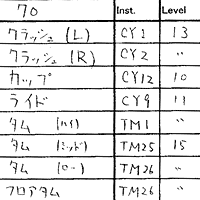 70 Inst. Level
クラッシュ (L) CY1 13
クラッシュ (R) CY2 〃
カップ CY12 10
ライド CY9 11
タム (ハイ) TM1 〃
タム (ミッド) TM25 15
タム (ロー) TM26 〃
フロアタム TM26 〃